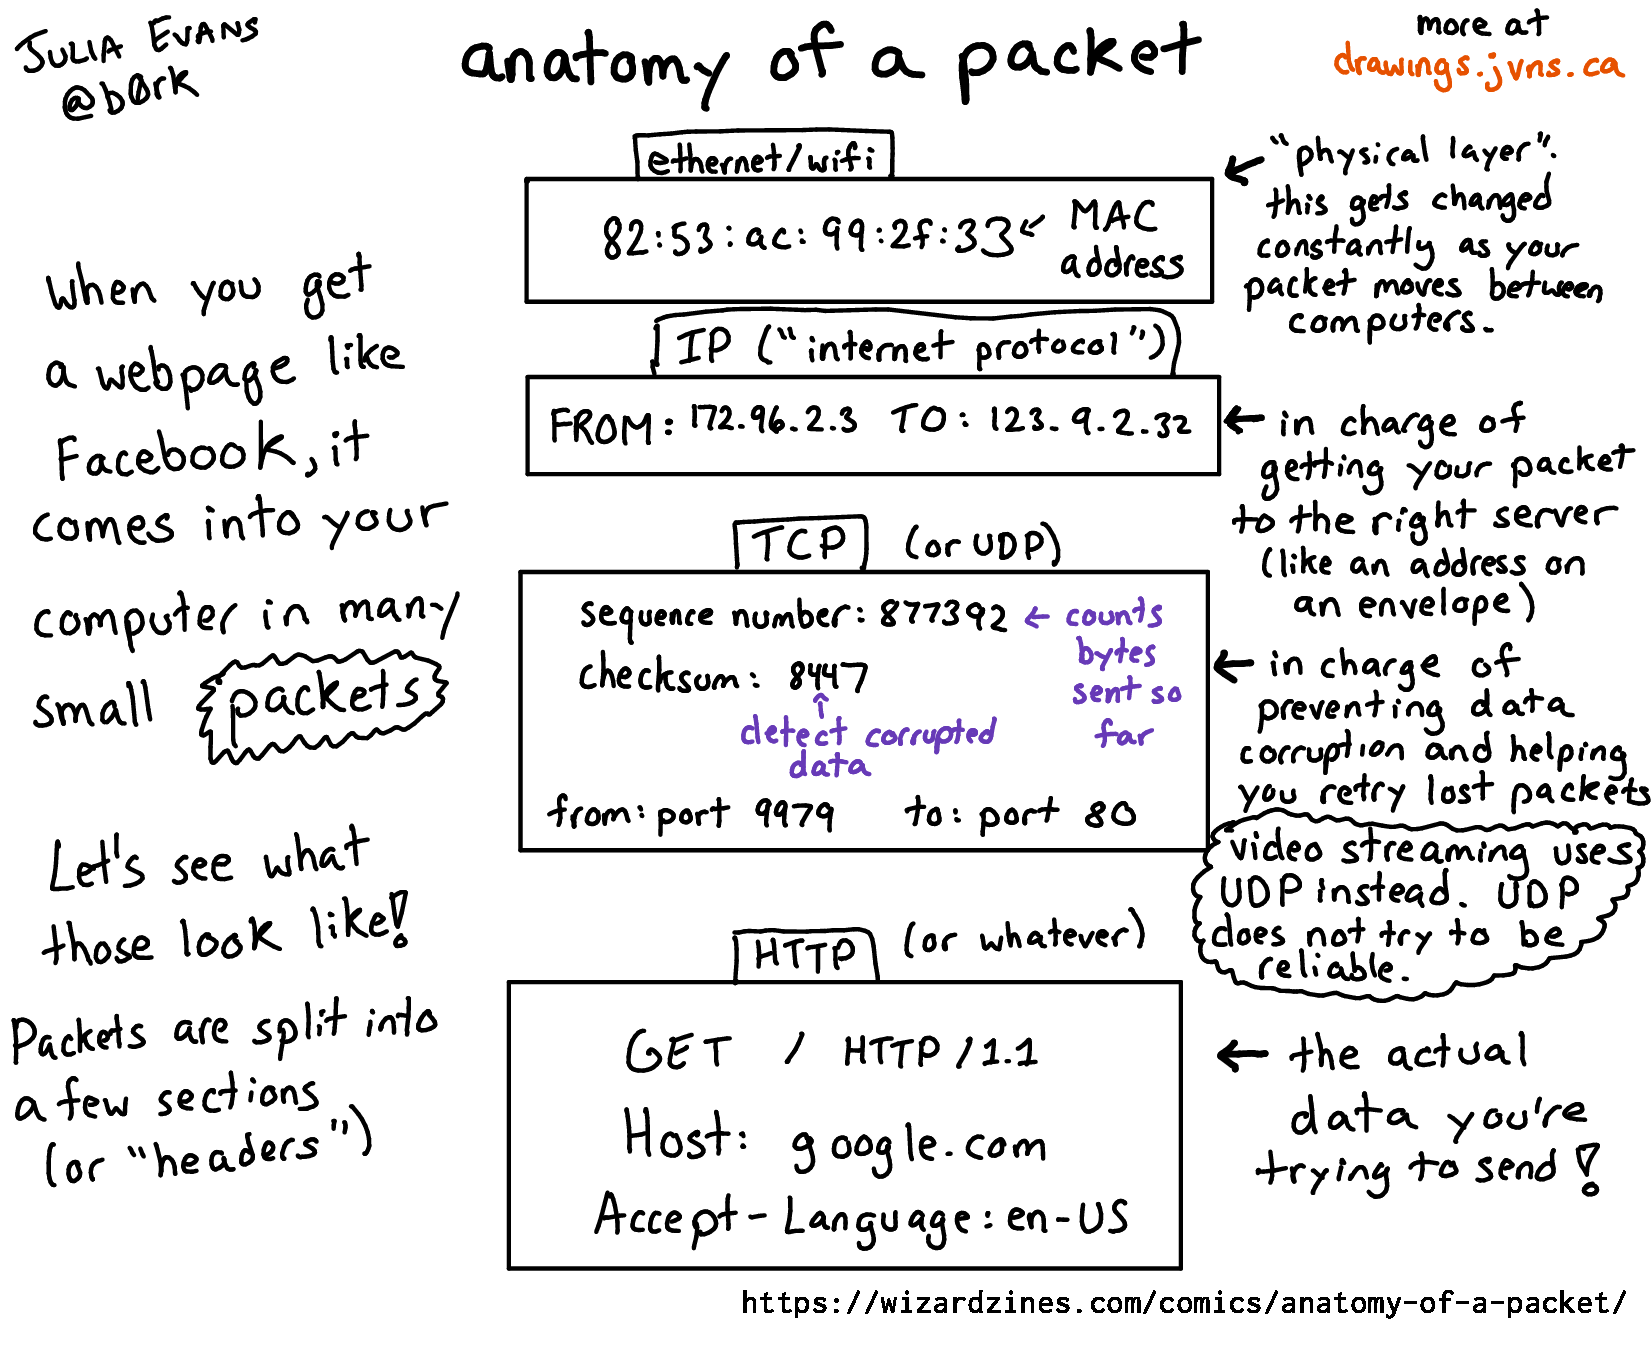 JULIA EVANS
@b0rk
anatomy of a packet
more at
drawings.jvns.ca
When you get
a webpage like
Facebook, it
comes into your
computer in many
small packets
Let's see what
those look like!
Packets are split into
a few sections
(or "headers")
ethernet/wifi
82:53:ac:99:2f:33 ← MAC
address
← "physical layer".
this gets changed
constantly as your
packet moves between
computers.
IP ("internet protocol")
FROM: 172.96.2.3 TO: 123.9.2.32
← in charge of
getting your packet
to the right server
(like an address on
an envelope)
TCP (or UDP)
sequence number: 877392 ← counts
bytes
sent so
far
checksum: 8447
↑
detect corrupted
data
from: port 9979 to: port 80
← in charge of
preventing data
corruption and helping
you retry lost packets
video streaming uses
UDP instead. UDP
does not try to be
reliable.
HTTP (or whatever)
GET / HTTP/1.1
Host: google.com
Accept-Language: en-US
← the actual
data you're
trying to send!
https://wizardzines.com/comics/anatomy-of-a-packet/